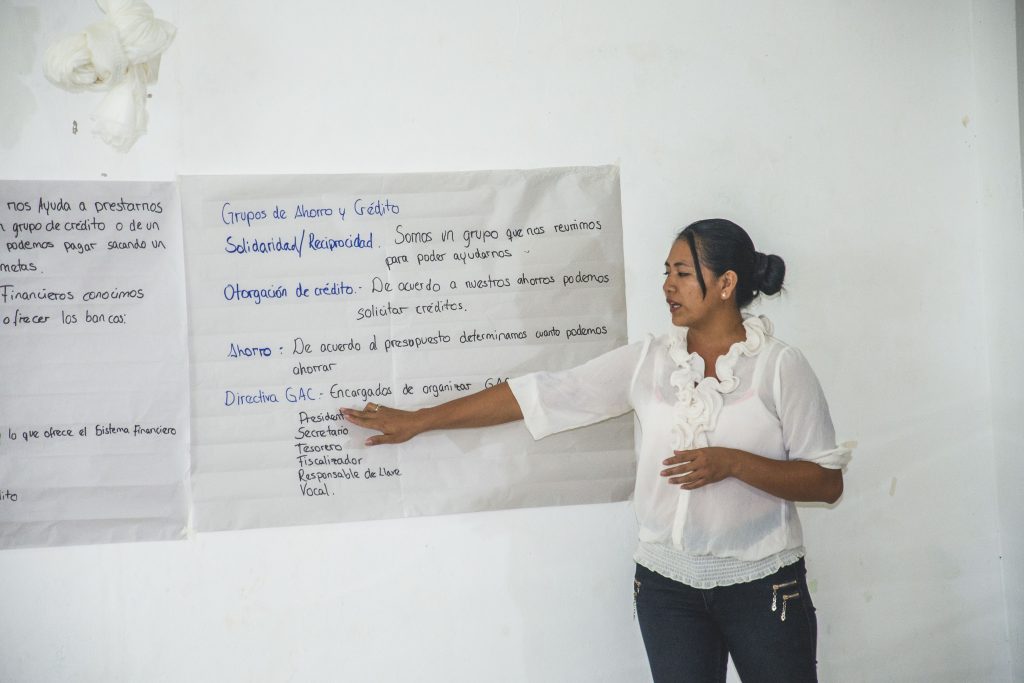 nos Ayuda a prestarnos
grupo de crédito o de un
podemos pagar sacando un
metas.
Financieros conocimos
ofrecer los bancos.
lo que ofrece el Sistema Financiero
Grupos de Ahorro y Crédito
Solidaridad/Reciprocidad. Somos un grupo que nos reunimos
para poder ayudarnos
Otorgación de crédito.- De acuerdo a nuestros ahorros podemos
solicitar créditos.
Ahorro : De acuerdo al presupuesto determinamos cuanto podemos
ahorrar
Directiva GAC.- Encargados de organizar
President
Secretario
Tesorero
Fiscalizador
Responsable de Llave
Vocal.